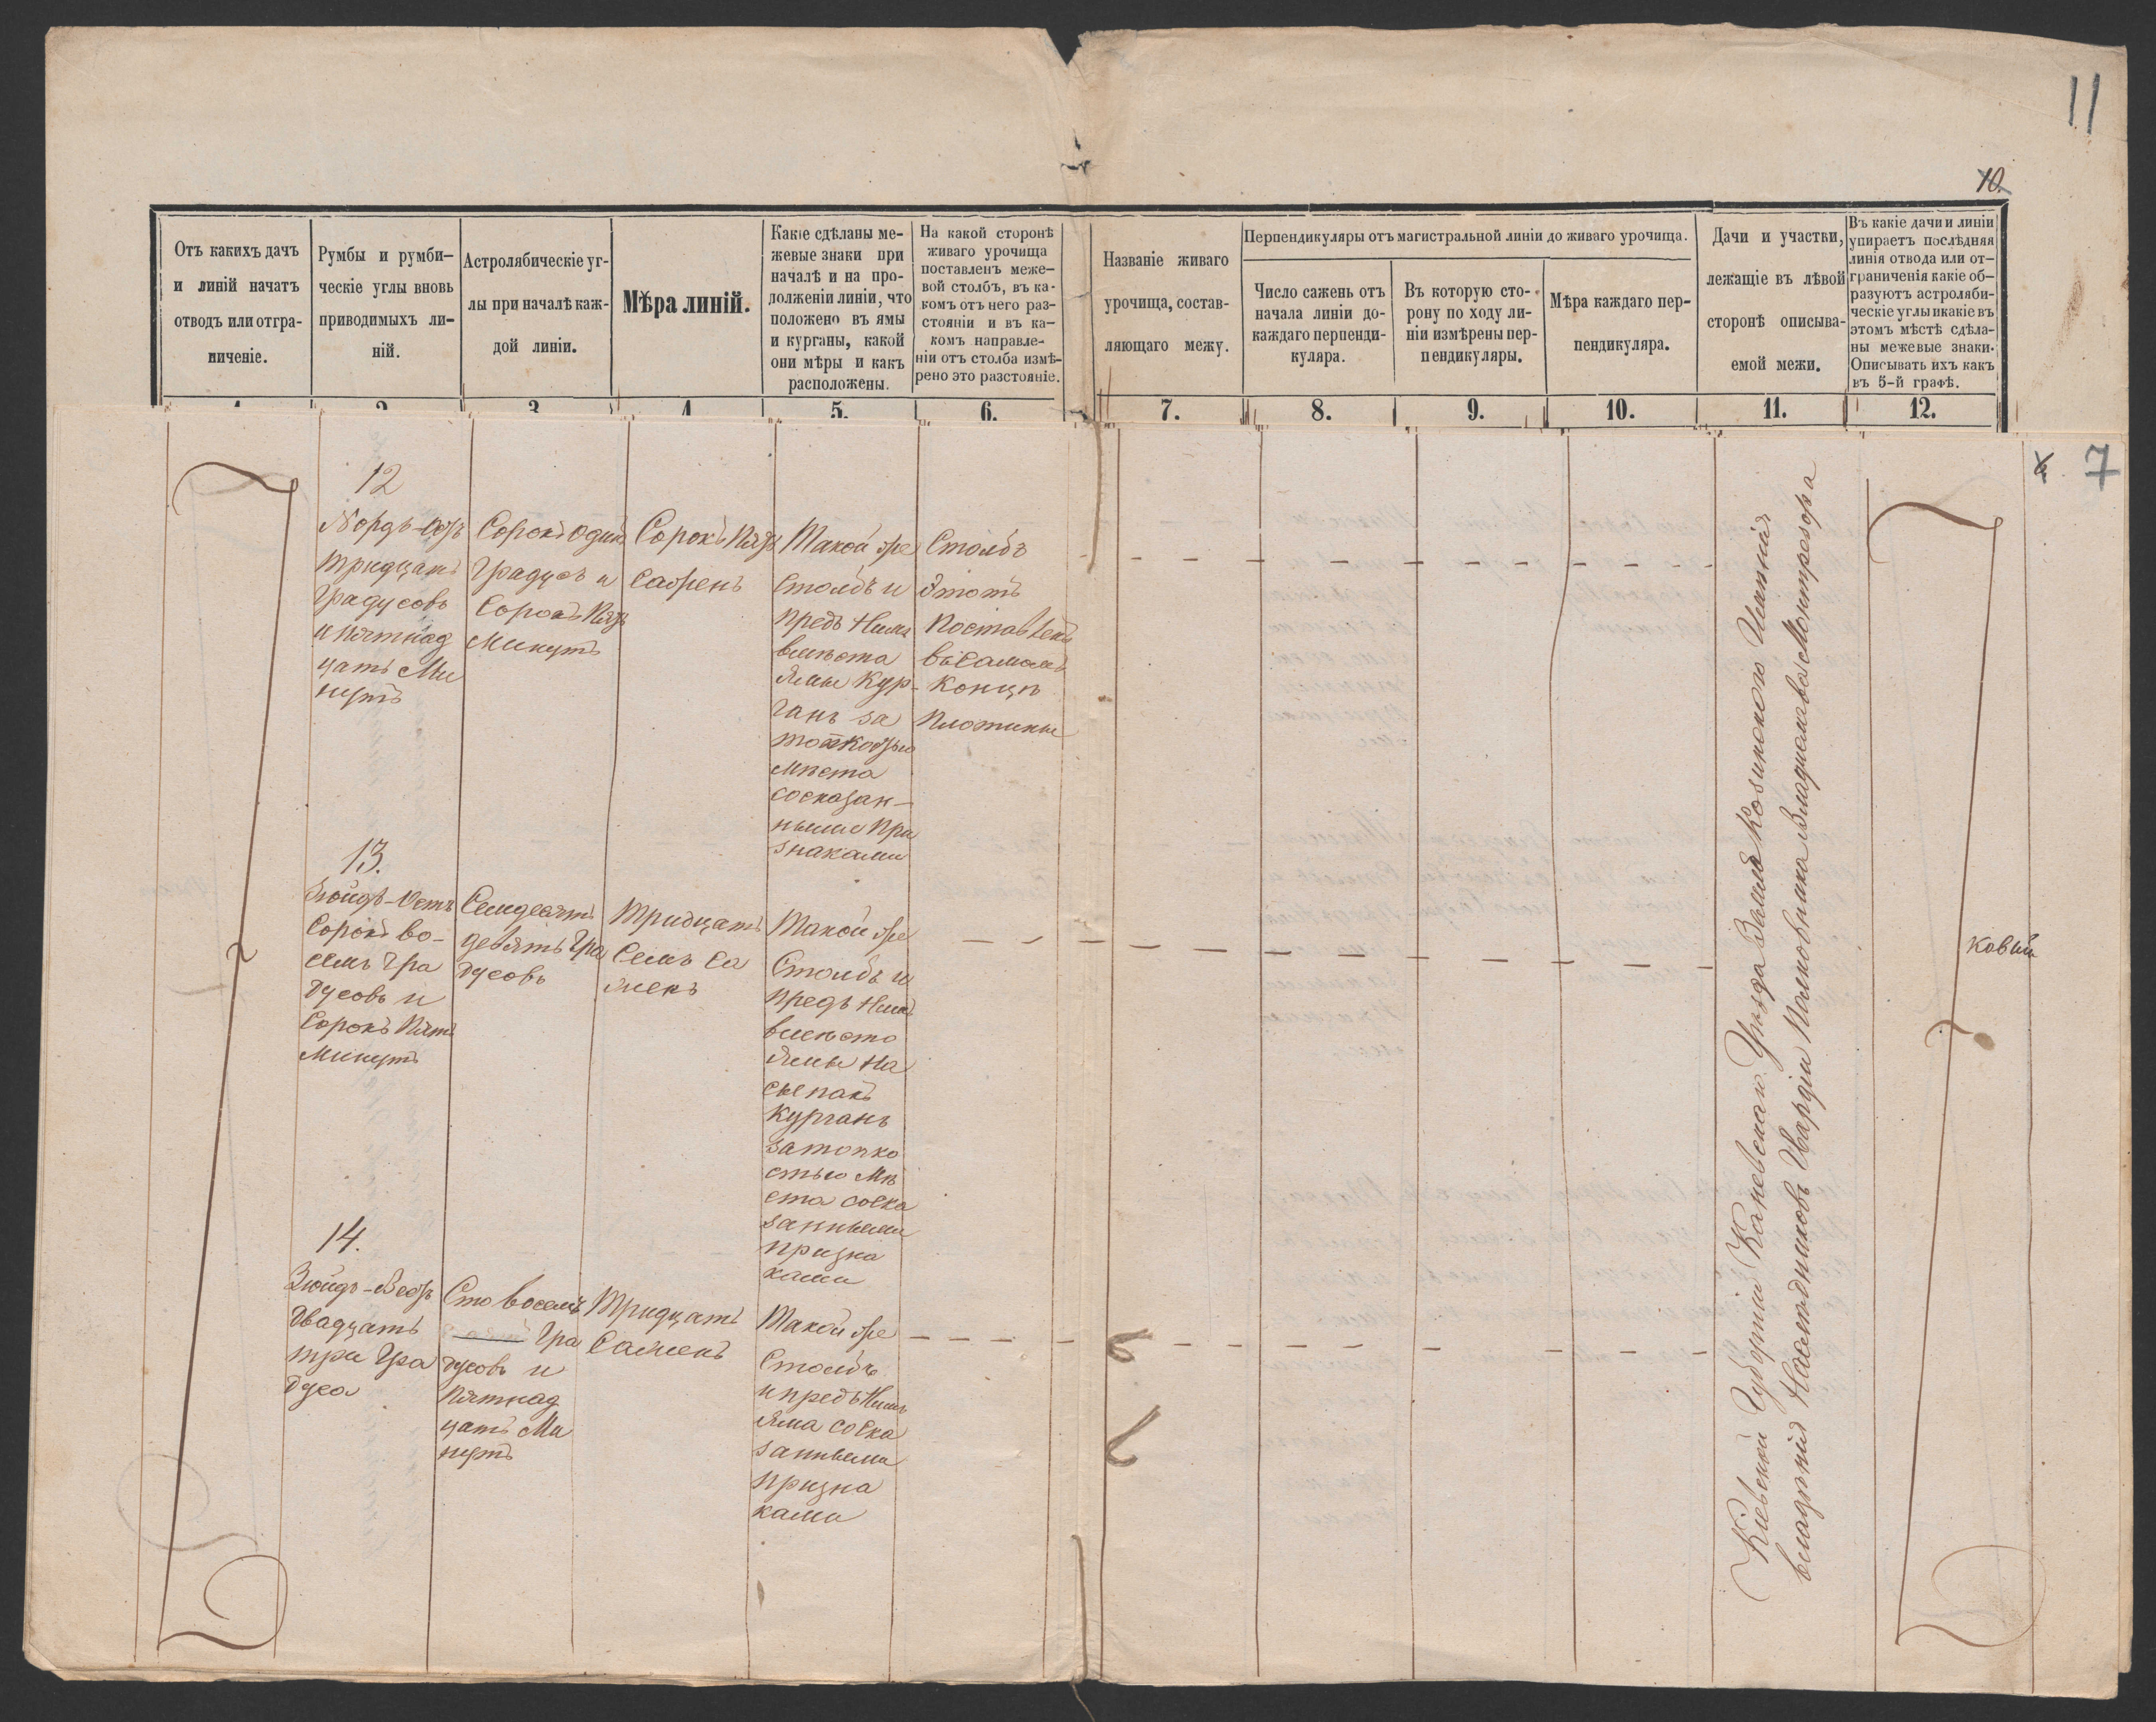 11
10.
Отъ какихъ дачъ
и линій начатъ
отводъ или отгра-
ниченіе.
Румбы и румби-
ческіе углы вновь
приводимыхъ ли-
ній.
Астролябическіе уг-
лы при началѣ каж-
дой линіи.
Мѣра линій.
Какіе сдѣланы ме-
жевые знаки при
началѣ и на про-
долженіи линіи, что
положено въ ямы
и курганы, какой
они мѣры и какъ
расположены.
На какой сторонѣ
живаго урочища
поставленъ меже-
вой столбъ, въ ка-
комъ отъ него раз-
стояніи и въ ка-
комъ направле-
ніи отъ столба измѣ-
рено это разстояніе.
Названіе живаго
урочища, состав-
ляющаго межу.
Перпендикуляры отъ магистральной линіи до живаго урочища.
Число сажень отъ
начала линіи до-
каждаго перпенди-
куляра.
Въ которую сто-
рону по ходу ли-
ніи измѣрены пер-
пендикуляры.
Мѣра каждаго пер-
пендикуляра.
Дачи и участки,
лежащіе въ лѣвой
сторонѣ описыва-
емой межи.
Въ какіе дачи и линіи
упираетъ послѣдняя
линія отвода или от-
граниченія какіе об-
разуютъ астроляби-
ческіе углы и какіе въ
этомъ мѣстѣ сдѣла-
ны межевые знаки.
Описывать ихъ какъ
въ 5-й графѣ.
1. 2. 3. 4. 5. 6. 7. 8. 9. 10. 11. 12.
7
12
Нордъ-Остъ
тридцать
градусовъ
и пятнад
цать Ми
нутъ
Сорокъ Одинъ
градусъ и
Сорокъ Пять
Минутъ
Сорокъ Пять
Сажень
Такой же
Столбъ и
предъ Нимъ
вмѣсто
Ямы Кур-
ганъ за
топкостью
мѣста
со сказан-
ными При
знаками
Столбъ
Этотъ
Поставленъ
въ самомъ
Концѣ
Плотины
13.
Зюйдъ-Остъ
Сорокъ во-
семь гра
дусовъ и
Сорокъ Пять
Минутъ
Семдесятъ
девять Гра
дусовъ
Тридцать
Семь Са
женъ
Такой же
Столбъ и
предъ Нимъ
вмѣсто
Ямы На
сыпанъ
Курганъ
за топко
стью Мѣ
ста со ска
занными
призна
ками
14.
Зюйдъ-Вестъ
Двадцать
три Гра
дуса
Сто восемь
Гра
дусовъ и
Пятнад
цать Ми
нутъ
Тридцать
Саженъ
Такой же
Столбъ
и предъ Нимъ
Яма со ска
занными
призна
ками
Кіевской Губерніи Каневскаго Уѣзда Земля Козинскаго Имѣнія
владѣнія Наслѣдниковъ Гвардіи Полковника Владислава Монтрезора
ковый